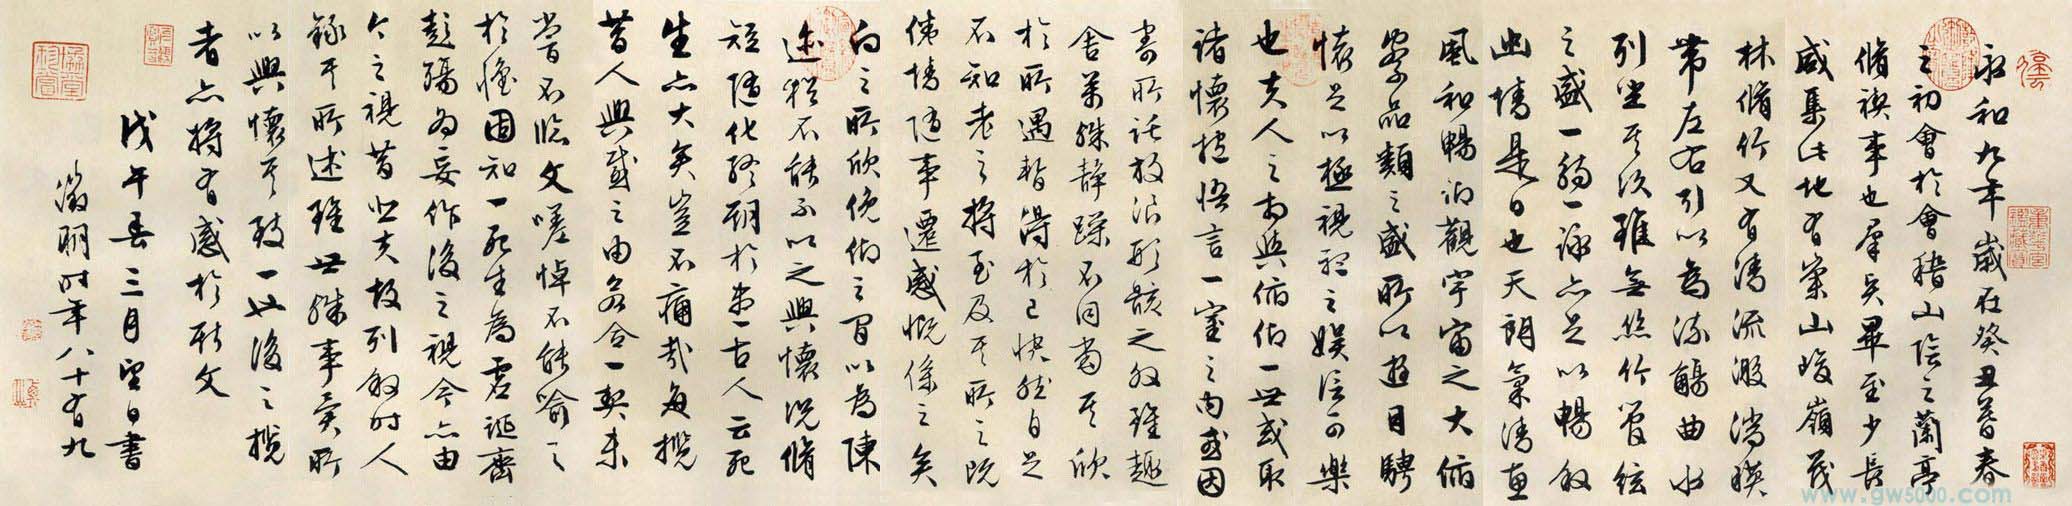 永和九年歲在癸丑暮春
之初會於會稽山陰之蘭亭
脩禊事也羣賢畢至少長
咸集此地有崇山峻嶺茂
林脩竹又有清流激湍暎
帶左右引以為流觴曲水
列坐其次雖無絲竹管絃
之盛一觴一詠亦足以暢敘
幽情是日也天朗氣清惠
風和暢仰觀宇宙之大俯
察品類之盛所以遊目騁
懷足以極視聽之娛信可樂
也夫人之相與俯仰一世或取
諸懷抱悟言一室之內或因
寄所託放浪形骸之外雖趣
舍萬殊靜躁不同當其欣
於所遇暫得於己快然自足
不知老之將至及其所之既
倦情隨事遷感慨係之矣
向之所欣俛仰之間以為陳
迹猶不能不以之興懷況脩
短隨化終期於盡古人云死
生亦大矣豈不痛哉每攬
昔人興感之由若合一契未
嘗不臨文嗟悼不能喻之
於懷固知一死生為虛誕齊
彭殤為妄作後之視今亦由
今之視昔悲夫故列敘時人
錄其所述雖世殊事異所
以興懷其致一也後之攬
者亦將有感於斯文
戊午春三月望日書
徵明時年八十有九
www.gw5000.com